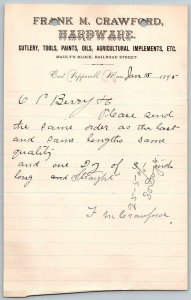 FRANK M. CRAWFORD,
HARDWARE.
CUTLERY, TOOLS, PAINTS, OILS, AGRICULTURAL IMPLEMENTS, ETC.
MAULT'S BLOCK, RAILROAD STREET.
East Pepperell, Mass., Jan 15 1895
C P Berry
Please send
the same order as the last
and same lengths same
quality
and one of
long and Straight
F M Crawford